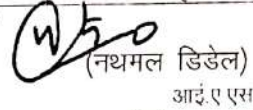 (नथमल डिडेल)
आई.ए एस